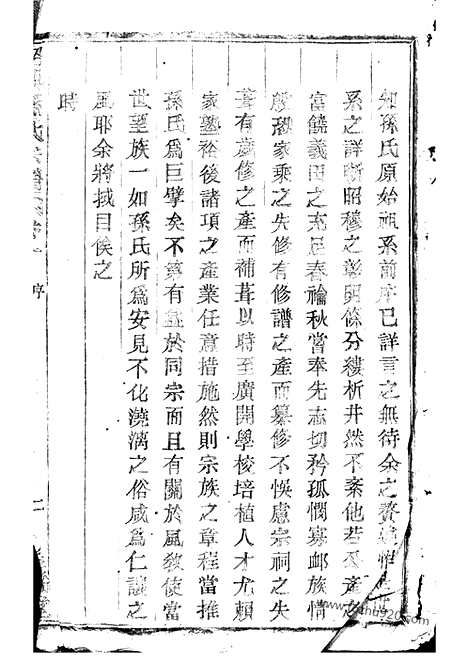 知孫氏原始祖系前序已詳言之無待余之贅述惟
系之詳昕昭穆之彰明條分縷析井然不紊他若及產之
富饒義田之充足春禴秋嘗奉先志切矜孤憫寡卹族情
殷恐家乘之失修有修譜之產而纂修不悞慮宗祠之失
葺有歲修之產而補葺以時至廣開學校培植人才尤賴
家塾裕後諸項之產業任意措施然則宗族之章程當推
孫氏為巨擘矣不第有益於同宗而且有關於風教使當
世望族一如孫氏所為安見不化澆漓之俗咸為仁讓之
風耶余將拭目俟之
時
孫氏宗譜
序
二